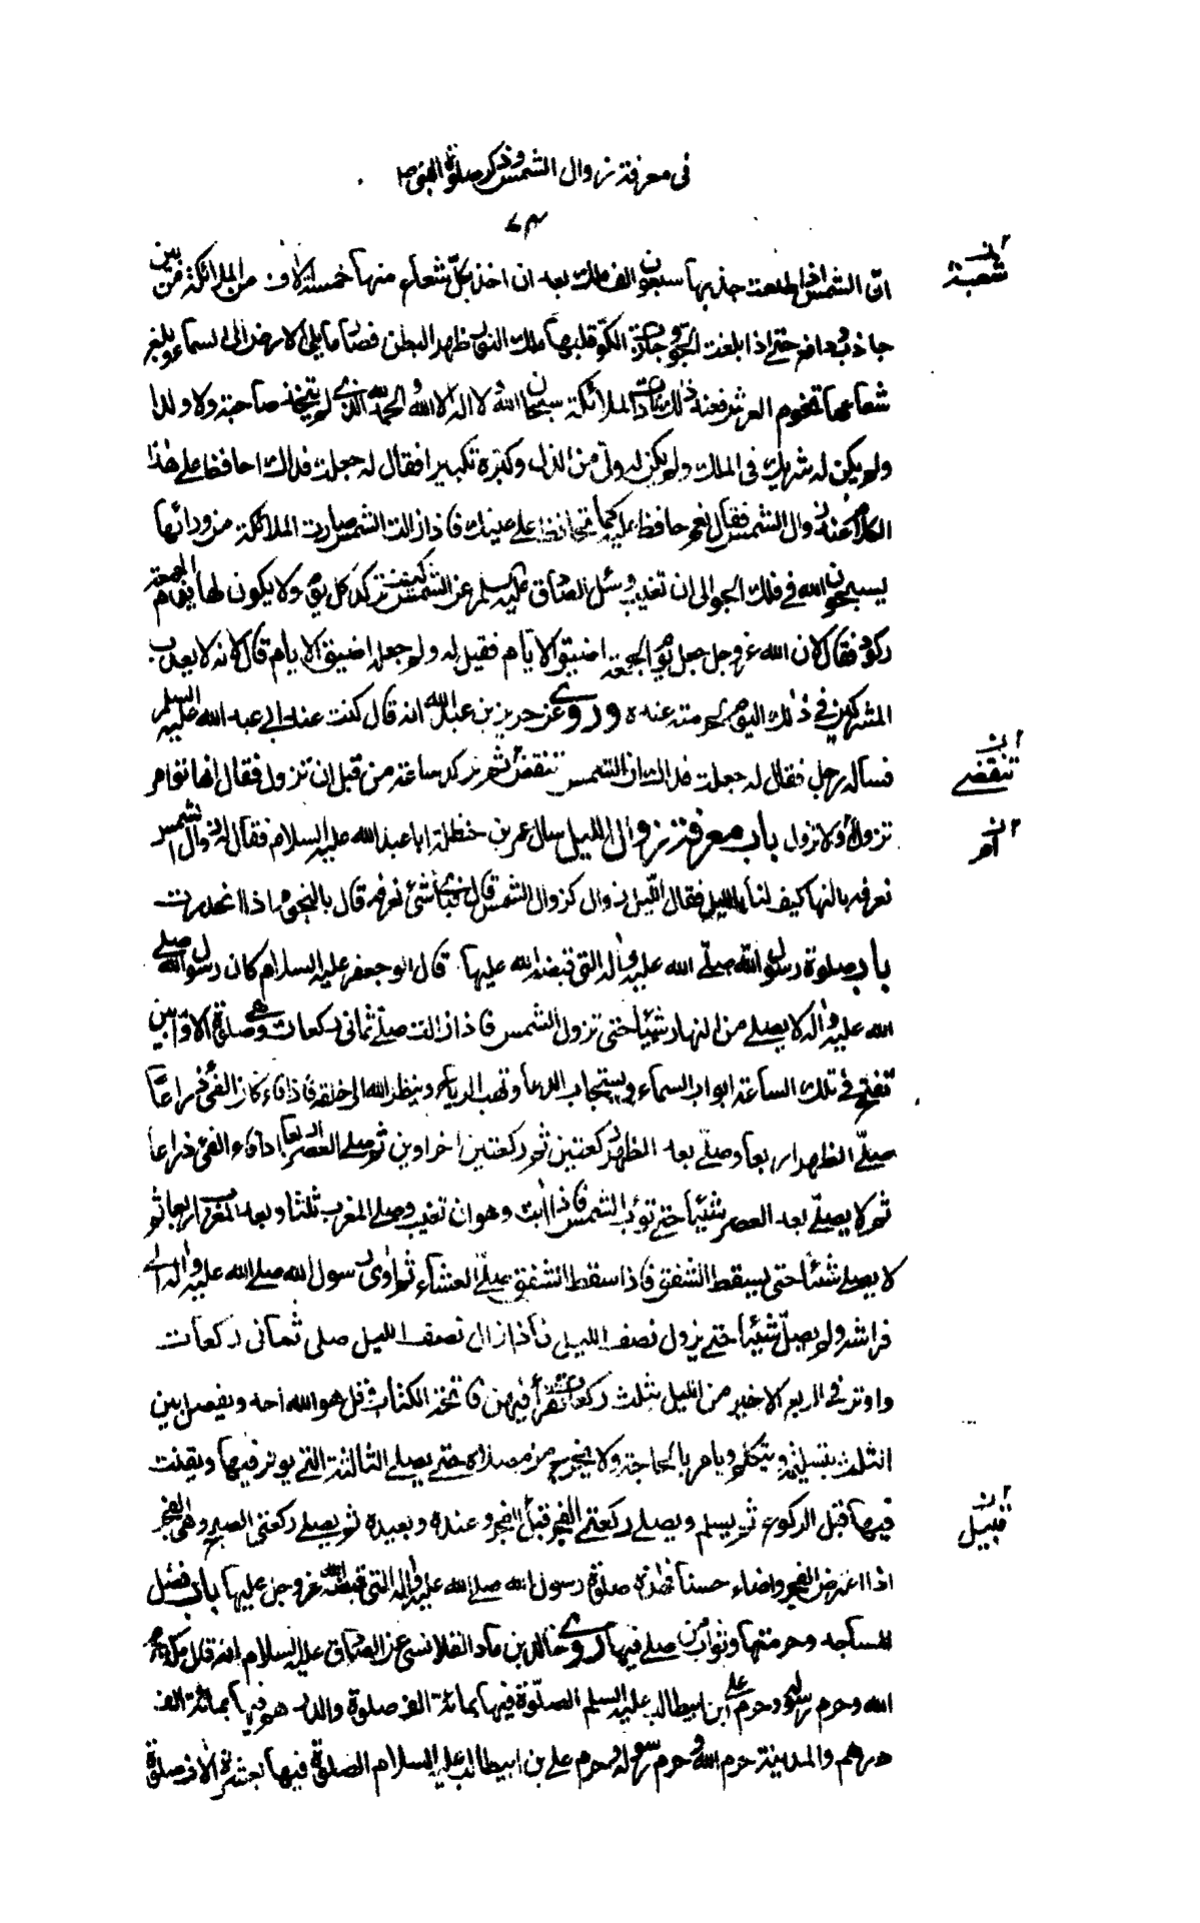 في معرفة زوال الشمس وذكر صلوة النبي ص
٧٣
انّ الشمس اذا طلعت جذبها سبعون الف ملك بعد ان اخذ بكلّ شعاع منها خمسة الاف من الملائكة من بين
جاذب ودافع حتى اذا بلغت الجوّ وجازت الكوّ قلبها ملك النور ظهر البطن فصار ما يلي الارض الى السماء وبلغ
شعاعها تخوم العرش فعند ذلك نادت الملائكة سبحان الله ولا اله الا الله والحمد لله الذي لم يتخذ صاحبة ولا ولدا
ولم يكن له شريك في الملك ولم يكن له ولي من الذل وكبره تكبيرا فقال له جعلت فداك احافظ على هذا
الكلام عند زوال الشمس فقال نعم حافظ عليه كما تحافظ على عينيك فاذا زالت الشمس صارت الملائكة من ورائها
يسبحون الله في فلك الجو الى ان تغيب وسئل الصادق عليه السلم عن الشمس كيف تركد كل يوم ولا يكون لها يوم الجمعة
ركود فقال لان الله عز وجل جعل يوم الجمعة اضيق الايام فقيل له ولم جعله اضيق الايام قال لانه لا يعذب
المشركين في ذلك اليوم لحرمته عنده وروي عن حريز بن عبد الله انه قال كنت عند ابي عبد الله عليه السلم
فسأله رجل فقال له جعلت فداك ان الشمس تنقض ثم تركد ساعة من قبل ان تزول فقال انها تؤامر
تزول او لا تزول باب معرفة زوال الليل سال عمر بن حنظلة ابا عبد الله عليه السلام فقال له زوال الشمس
نعرفه بالنهار كيف لنا بالليل فقال لليل زوال كزوال الشمس قال فبأي شئ نعرفه قال بالنجوم اذا انحدرت
باب صلوة رسول الله صلى الله عليه واله التي قبضه الله عليها قال ابو جعفر عليه السلام كان رسول الله صلى
الله عليه واله لا يصلي من النهار شيئا حتى تزول الشمس فاذا زالت صلى ثماني ركعات وهي صلوة الاوّابين
تفتح في تلك الساعة ابواب السماء ويستجاب الدعا وتهب الرياح وينظر الله الى خلقه فاذا فاء الفئ ذراعا
صلّى الظهر اربعا وصلّى بعد الظهر ركعتين ثم ركعتين اخراوين ثم صلى العصر اربعا اذا فاء الفئ ذراعا
ثم لا يصلّي بعد العصر شيئا حتى تؤب الشمس فاذا ابت وهو ان تغيب وصلى المغرب ثلثا وبعد المغرب اربعا ثم
لا يصلي شيئا حتى يسقط الشفق فاذا سقط الشفق صلّى العشاء ثم اوى رسول الله صلى الله عليه واله الى
فراشه ولم يصلّ شيئا حتى يزول نصف الليل فاذا زال نصف الليل صلى ثماني ركعات
واوتر في الربع الاخير من الليل بثلث ركعات فقرأ فيهن فاتحة الكتاب وقل هو الله احد ويفصل بين
الثلث بتسليمة ويتكلم ويامر بالحاجة ولا يخرج من مصلاه حتى يصلي الثالثة التي يوتر فيها ويقنت
فيها قبل الركوع ثم يسلم ويصلي ركعتي الفجر قبل الفجر وعنده وبعيده ثم يصلي ركعتي الصبح وهي الفجر
اذا اعترض الفجر واضاء حسنا فهذه صلوة رسول الله صلى الله عليه واله التي قبضه الله عز وجل عليها باب فضل
المساجد وحرمتها وثواب من صلى فيها روى خالد بن ماد القلانسي عن الصادق عليه السلام انه قال مكة حرم
الله وحرم رسوله وحرم علي ابن ابيطالب عليه السلم الصلوة فيها بمائة الف صلوة والدرهم فيها بمائة الف
درهم والمدينة حرم الله وحرم رسوله وحرم علي بن ابيطالب عليه السلام الصلوة فيها بعشرة الاف صلوة
شعبة
تنقضي
قبيل